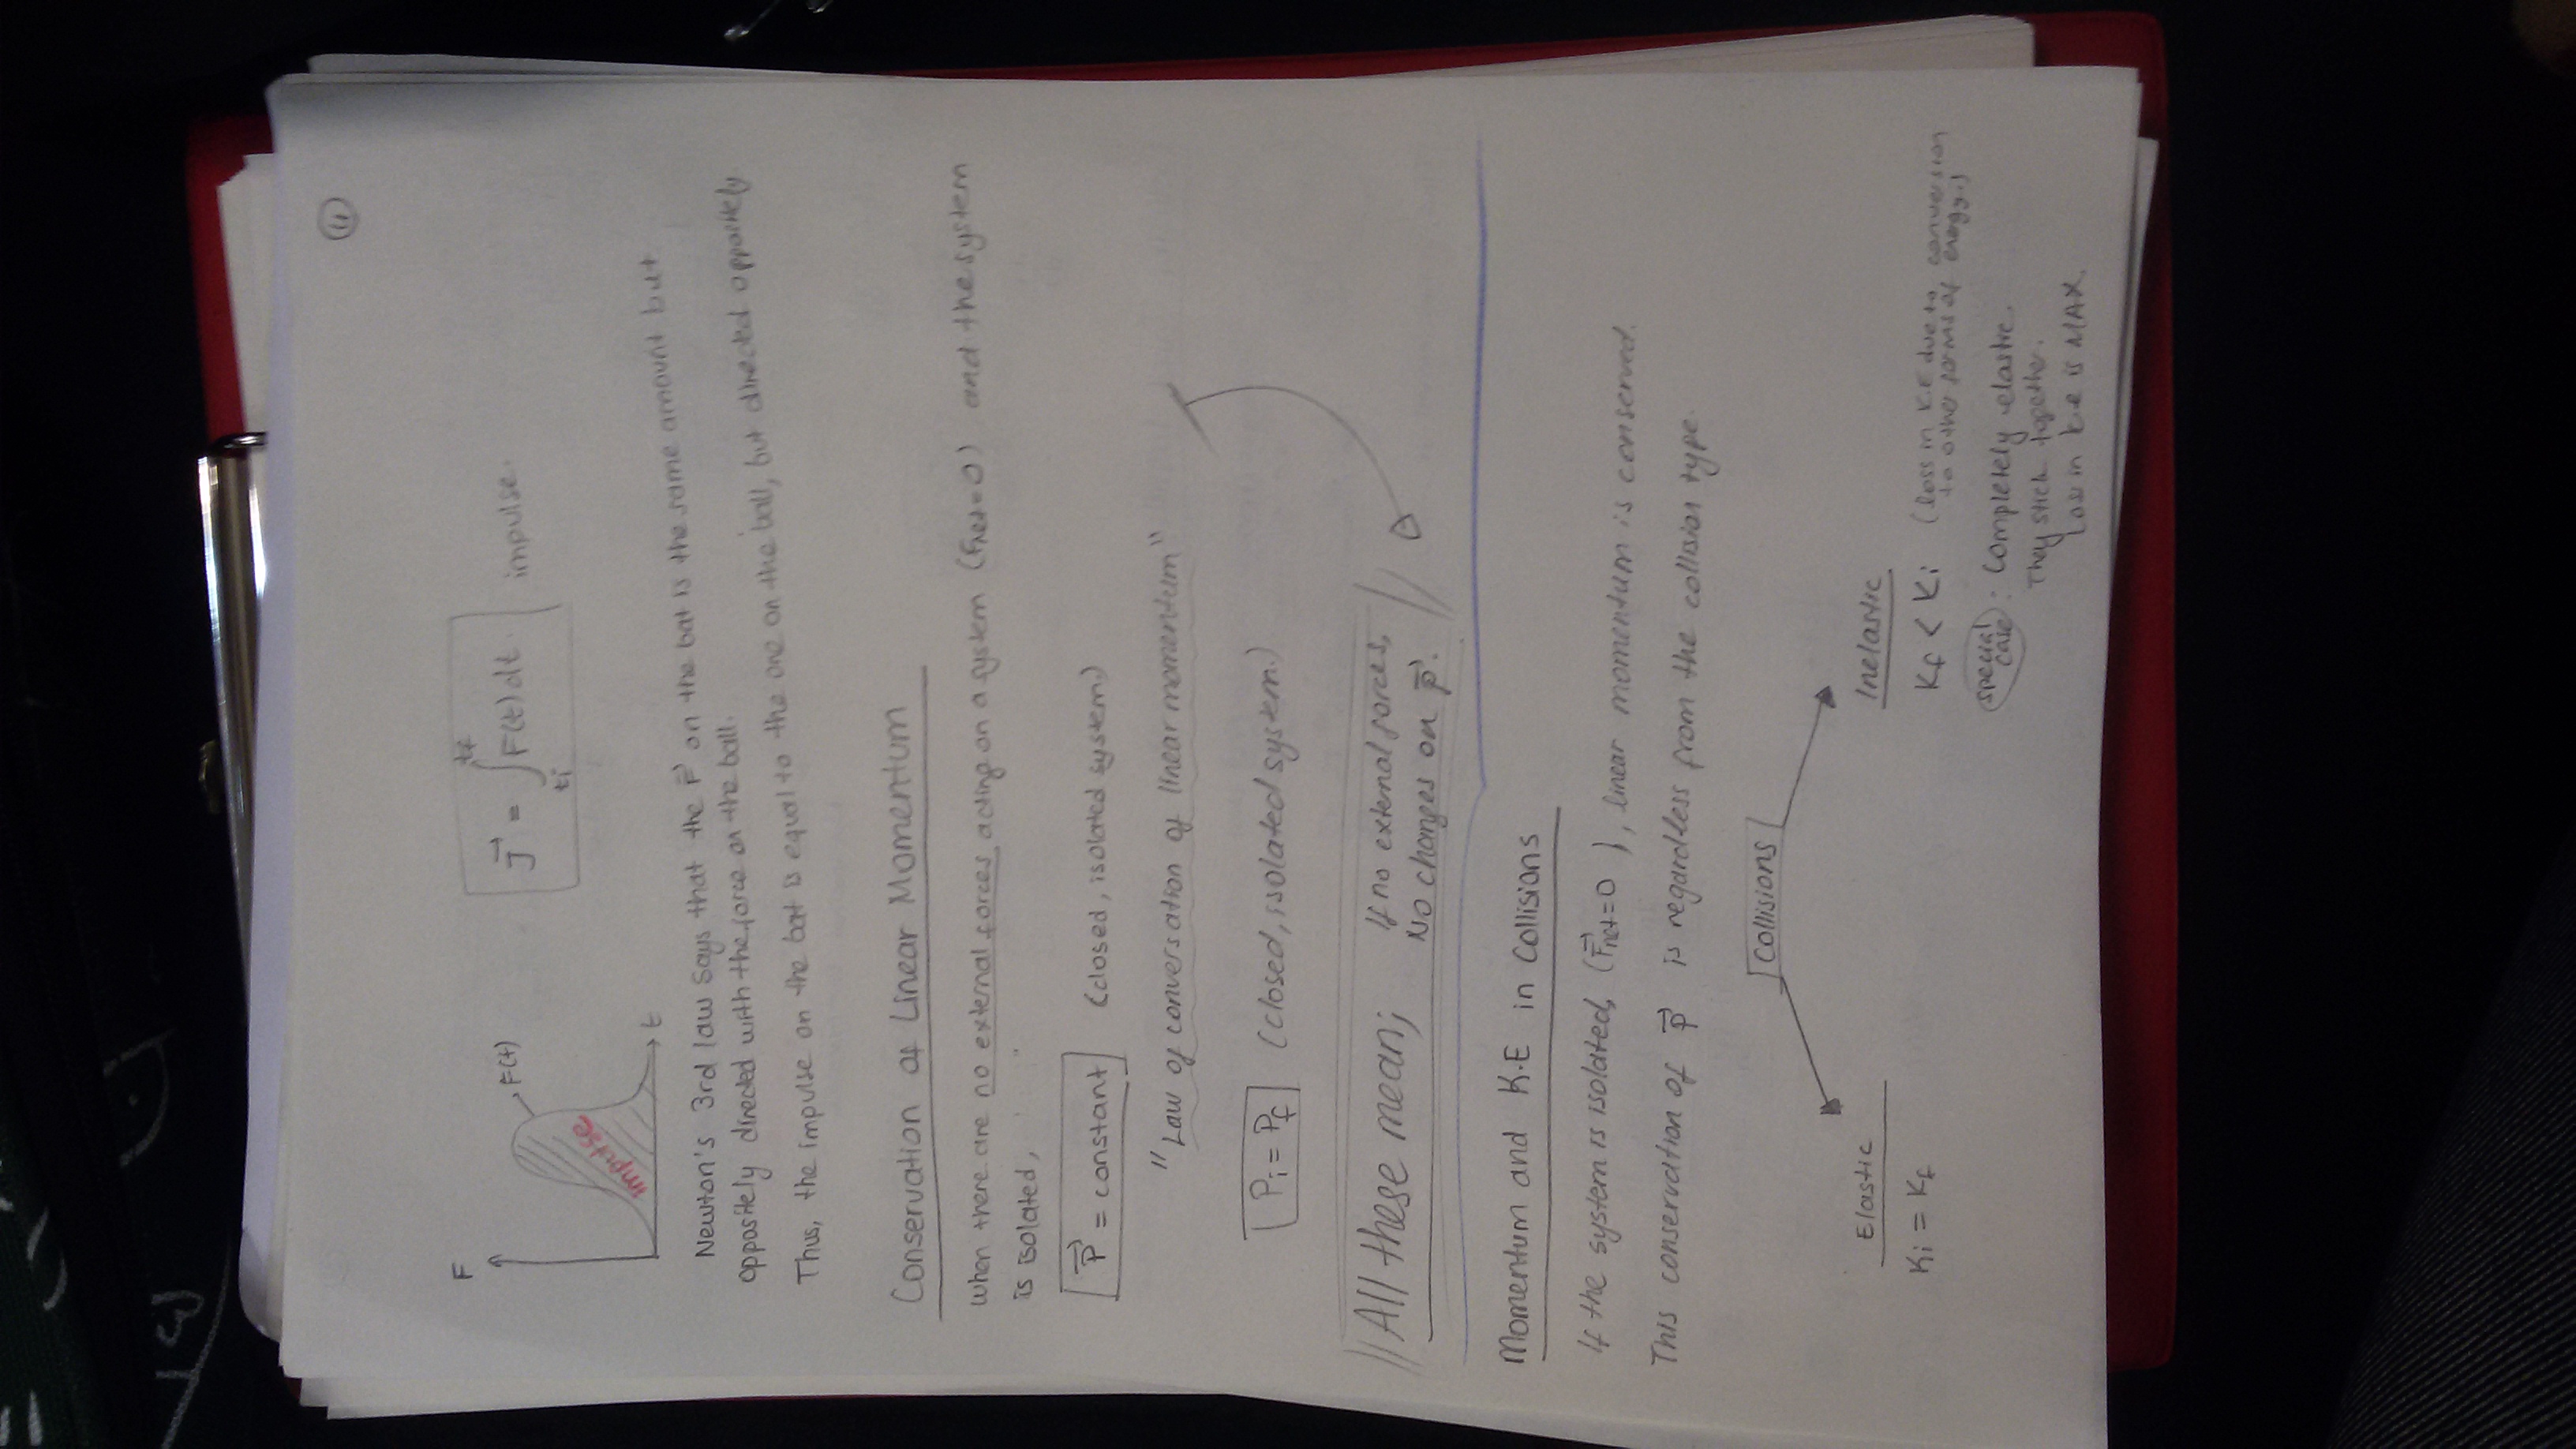 11
F
F(t)
impulse
t
J⃗ = ∫ti^tf F(t) dt impulse.
Newton's 3rd law says that the F⃗ on the bat is the same amount but
oppositely directed with the force on the ball.
Thus, the impulse on the bat is equal to the one on the ball, but directed oppositely
Conservation of Linear Momentum
when there are no external forces acting on a system (Fnet=0) and the system
is isolated,
P⃗ = constant (closed, isolated system.)
"Law of conversation of linear momentum"
Pi = Pf (closed, isolated system.)
All these mean; If no external forces,
No changes on p⃗.
Momentum and K.E in Collisions
If the system is isolated, (F⃗net=0), linear momentum is conserved.
This conservation of p⃗ is regardless from the collision type.
Collisions
Elastic
Ki = Kf
Inelastic
Kf < Ki (loss in K.E due to conversion
to other forms of energy.)
special case : Completely elastic.
They stick together.
Loss in k.e is MAX.